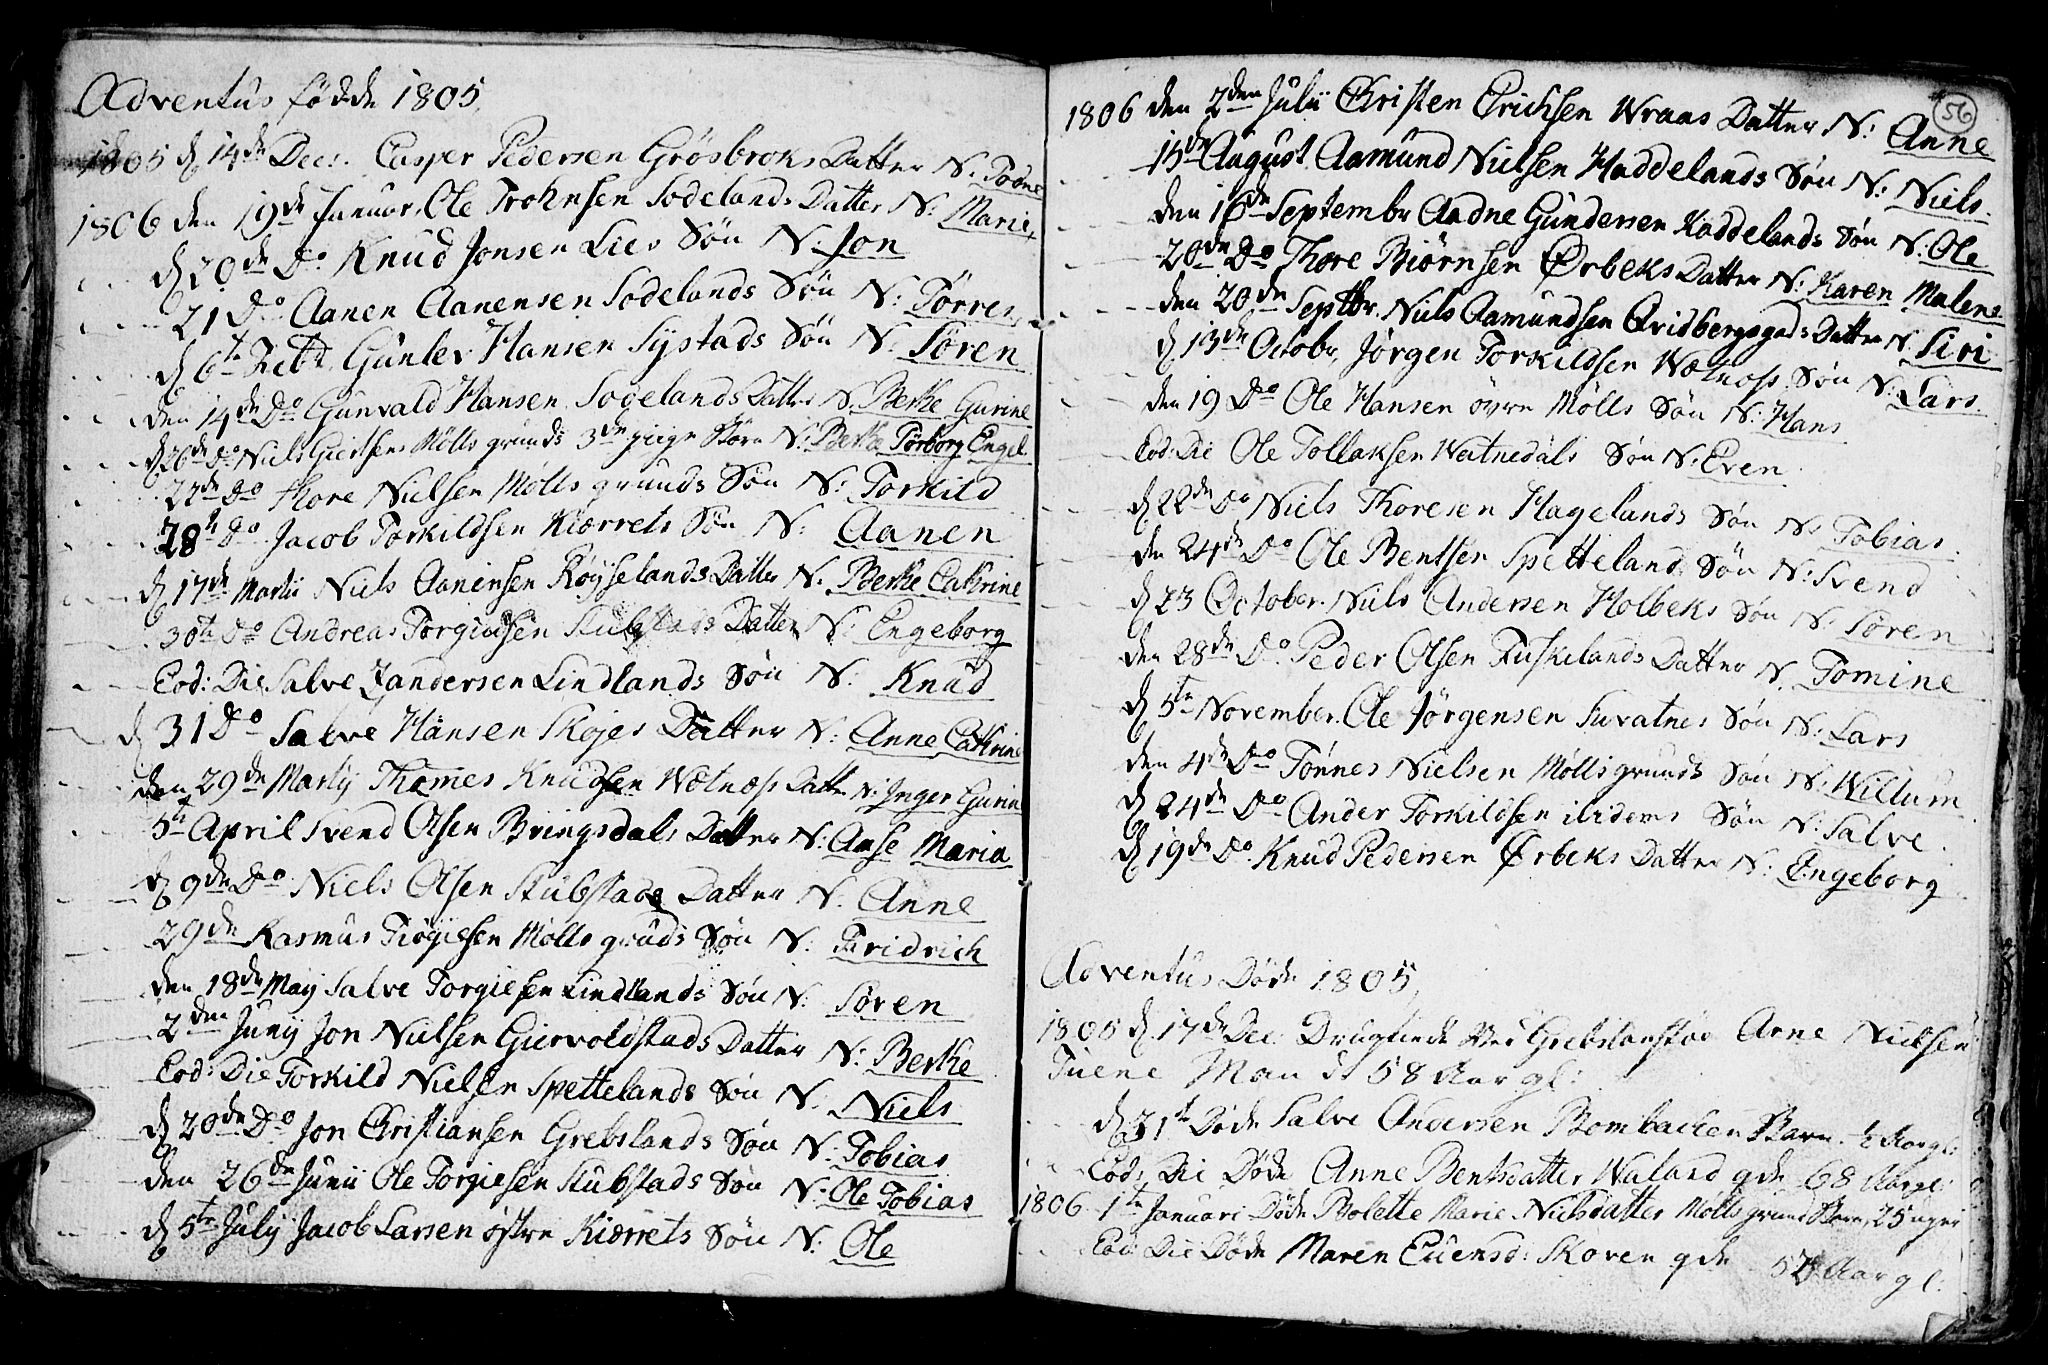 Adventus fødde 1805
1805 d 14de Decr. Casper Pedersen Grösbroks Datter N. Todne
1806 den 19de Januar, Ole Trohnsen Sodelands Datter N: Marie
d 20de Do Knud Jonsen Lies Søn N. Jon
21 Do Aanen Aanensen Sodelands Søn N: Tørres
d 6te Febr. Gunlev Hansen Systads Søn N. Søren
den 14de Do Gunvald Hansen Sodelands Datter N. Berthe Gurine
d 26de Do Niels Mølls grunds 3de Børn N. Berthe Torborg Engel
27de Do Thore Nielsen Mølls grunds Søn N: Torkild
28de Do Jacob Torkildsen Kiærrets Søn N: Aanen
d 17de Martii Niels Aanensen Røyselands Datter N. Berthe Cathrine
30te Do Andreas Torgiusen Stubstads Datter N: Engeborg
Eod: Die Salve Andersen Lindlands Søn N: Knud
d 31 Do Salve Hansen Skøjes Datter N: Anne Cathrine
den 29de Martij Thomes Knudsen Wætnæss Datter N: Inger Gurine
5te April Svend Olsen Bringsdals Datter N: Aase Maria
d 9de Do Niels Olsen Stubstads Datter N. Anne
29de Rasmus Mølls gruds Søn N: Fridrich
den 18de Maij Salve Torgiesen Lindlands Søn N: Søren
2den Junij Jon Nielsen Giervoldstads Datter N: Berthe
Eod: Die Torkild Nielsen Spettelands Søn N. Niels
d 20de Do Jon Christiansen Grebslands Søn N: Tobias
den 26de Junii Ole Torgiesen Stubstads Søn N: Ole Tobias
d 5te Julij Jacob Larsen østre Kiærrets Søn N: Ole
56
1806 den 2den Julii Christen Erichsen Wraas Datter N: Anne
15de August Aamund Nielsen Haddelands Søn N: Niels
den 16de September Aadne Gundersen Haddelands Søn N: Ole
20de Do Thore Biørnsen Ørbeks Datter N: Karen Malene
den 20de Septbr. Niels Aamundsen Datter N. Siri
d 13de Octobr, Jørgen Torkildsen Wætnæss Søn N: Lars
den 19 Do Ole Hansen øvre Mølls Søn N: Hans
Eod: Die Ole Tollaksen Watnedals Søn N: Even
d 22de Do Niels Thoresen Hagelands Søn N: Tobias
den 24de Do Ole Bentsen Spetteland Søn N: Svend
d 23 October. Niels Andersen Holbeks Søn N: Søren
den 28de Do Peder Olsen Fuskelands Datter N. Tomine
d 5te November. Ole Jørgensen Suvatnes Søn N: Lars
den 4de Do Tønnes Nielsen Mølls grunds Søn N: Willum
d 24de Do Ander Torkildsen ibidems Søn N: Salve
d 19de Do Knud Pedersen Ørbeks Datter N: Engeborg
Adventus Døde 1805
1805 d. 17de Dec. Drugnede Ved Arne Nielsen
Tuene Mand 58 Aar gl:
d 31te Døde Salve Andersen Barn ½ Aar gl:
Eod: Die Døde Anne Bentsdatter Waland gde 68 Aar gl:
1806 1te Januari Døde Bolette Marie Nielsdatter Mølls grund Barn 25 uger
Eod: Die Døde Maren Evensd: Skoven gde Aar gl: